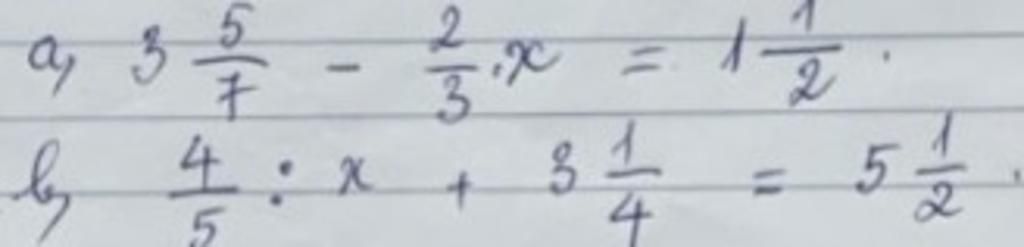 a, 3 5/7 - 2/3 . x = 1 1/2 .
b, 4/5 : x + 3 1/4 = 5 1/2 .